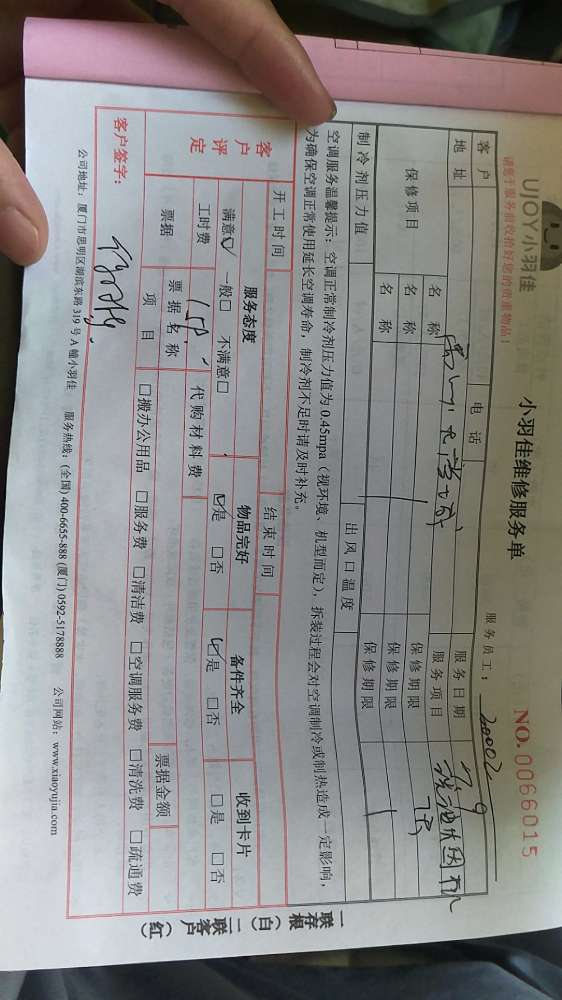 UJOY小羽佳
小羽佳维修服务单
NO.0066015
请您于服务前收拾好您的贵重物品！
服务员工： 20002
客户 电话 服务日期 7.9
地址 服务项目
保修项目 名称 保修期限
名称 保修期限
名称 保修期限
制冷剂压力值 出风口温度
空调服务温馨提示：空调正常制冷剂压力值为0.45mpa（视环境、机型而定），拆装过程会对空调制冷或制热造成一定影响，
为确保空调正常使用延长空调寿命，制冷剂不足时请及时补充。
开工时间 结束时间
客户评定 服务态度 物品完好 备件齐全 收到卡片
满意☑ 一般□ 不满意□ ☑是 □否 ☑是 □否 □是 □否
工时费 150 代购材料费
票据 票据名称 票据金额
项目 □搬办公用品 □服务费 □清洁费 □空调服务费 □清洗费 □疏通费
客户签字：
公司地址：厦门市思明区湖滨东路319号A幢小羽佳 服务热线：(全国) 400-6655-888 (厦门) 0592-5178888 公司网站：www.xiaoyujia.com
一联存根（白） 二联客户（红）